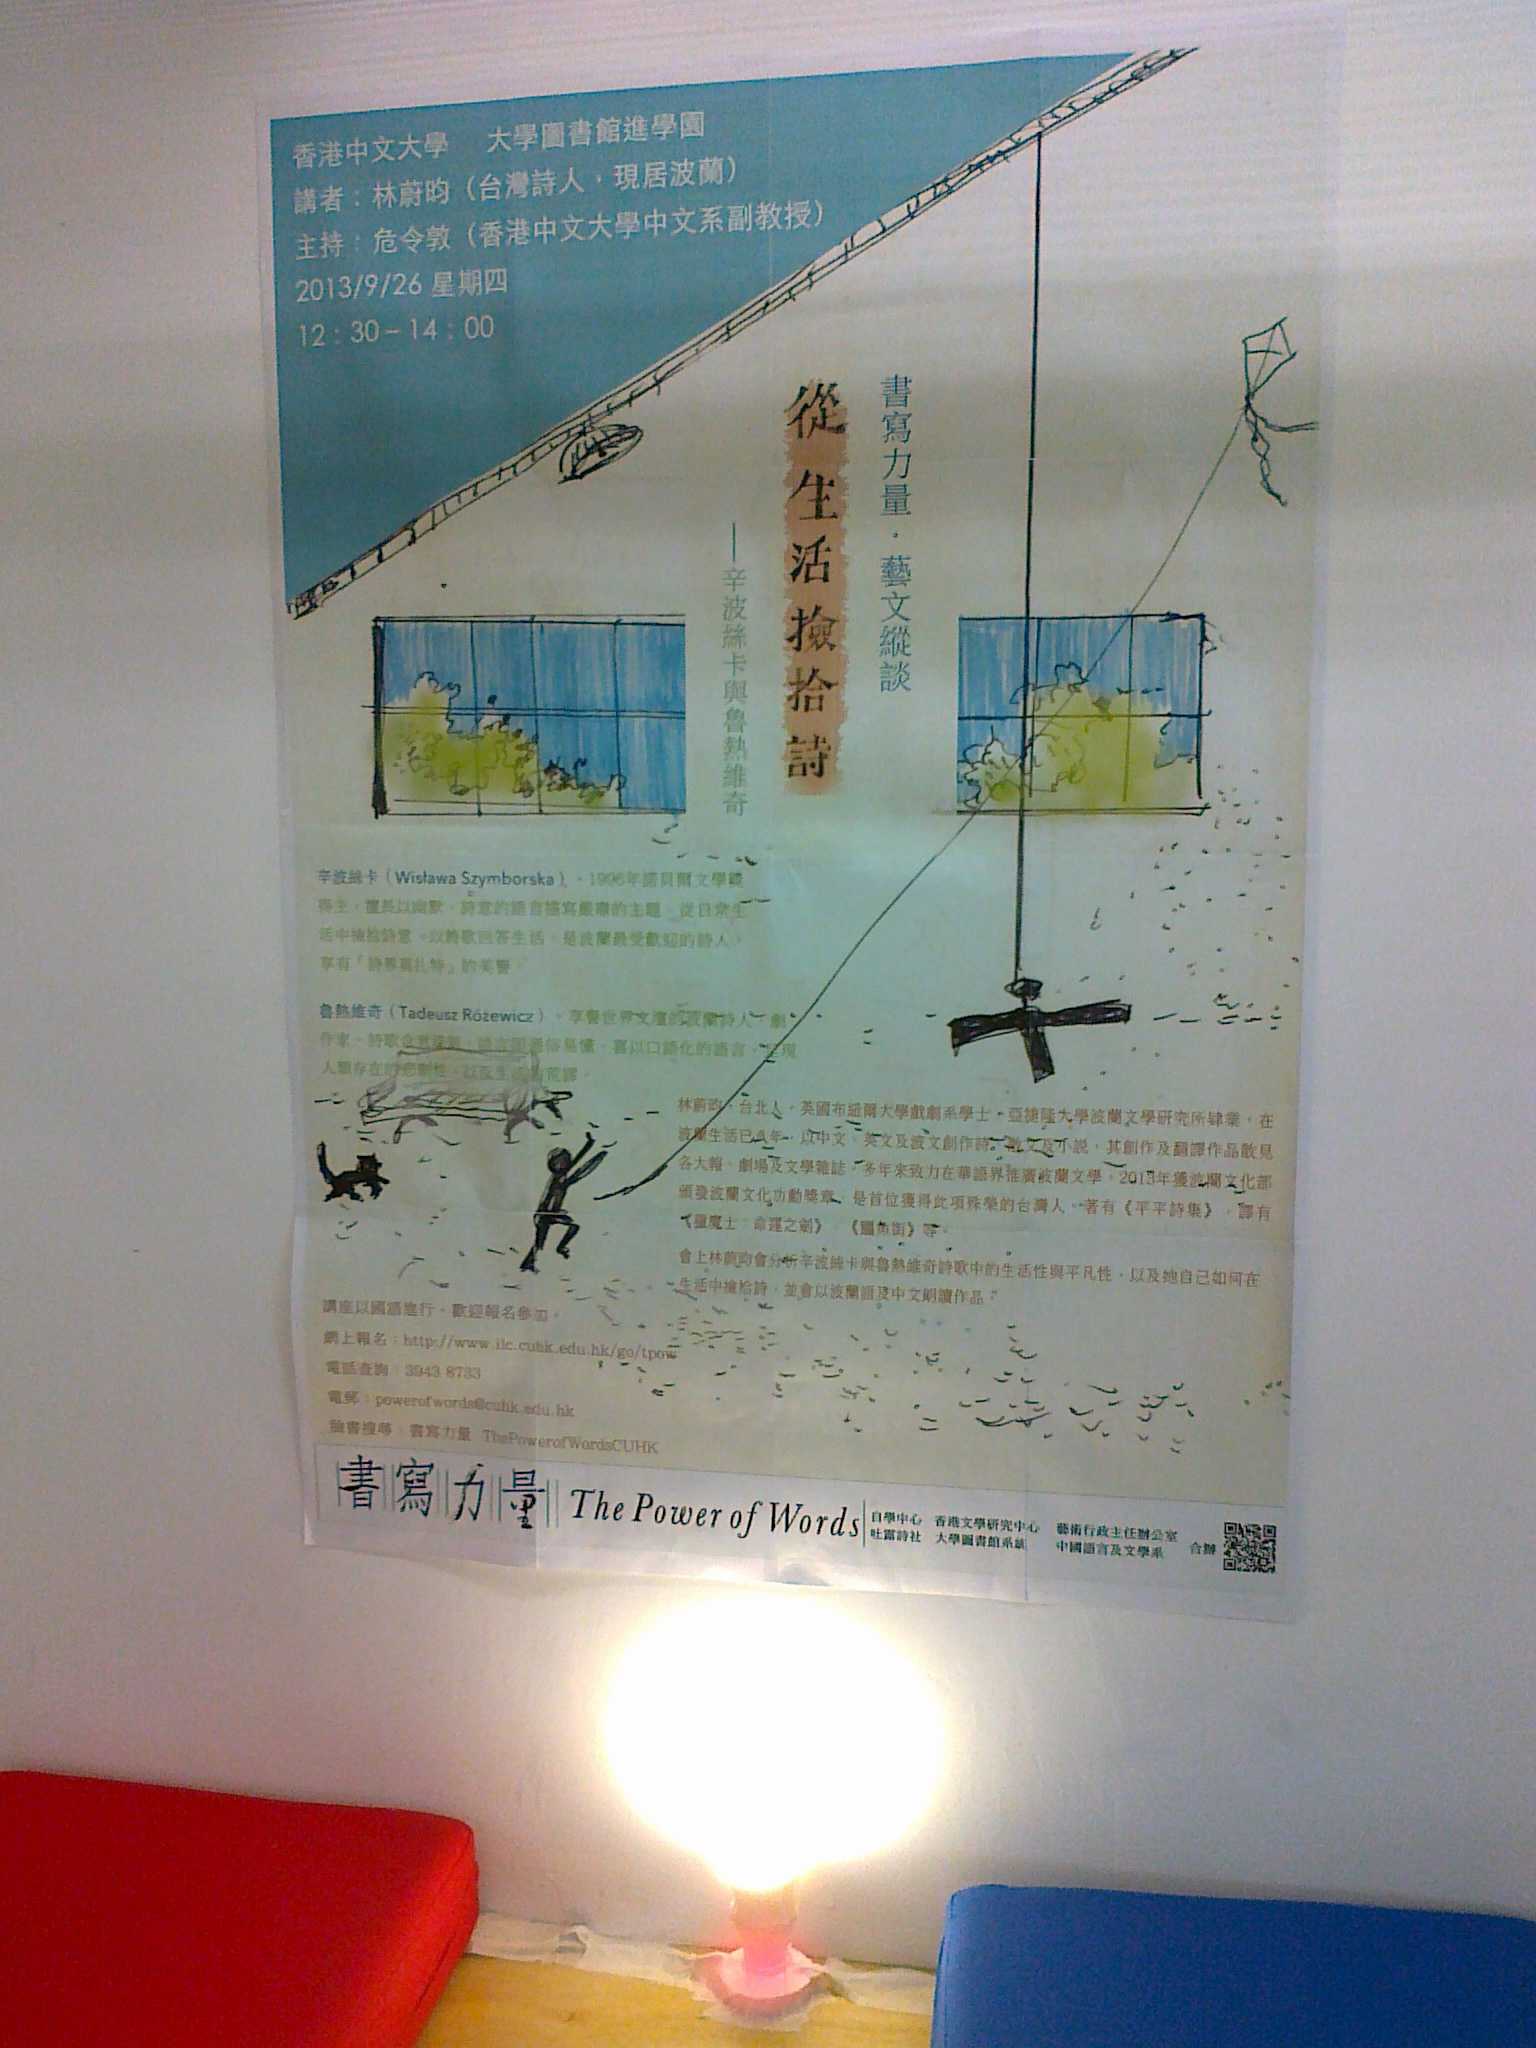 香港中文大學 大學圖書館進學園
講者：林蔚昀（台灣詩人，現居波蘭）
主持：危令敦（香港中文大學中文系副教授）
2013/9/26 星期四
12：30－14：00
書寫力量・藝文縱談
從生活撿拾詩
——辛波絲卡與魯熱維奇
辛波絲卡（Wisława Szymborska），1996年諾貝爾文學獎
得主，擅長以幽默、詩意的語言描寫嚴肅的主題，從日常生
活中撿拾詩意，以詩歌回答生活，是波蘭最受歡迎的詩人，
享有「詩界莫扎特」的美譽。
魯熱維奇（Tadeusz Różewicz），享譽世界文壇的波蘭詩人、劇
作家。詩歌 語言 通俗易懂，喜以口語化的語言，呈現
人類存在的悲劇性，以及生活的荒謬。
林蔚昀，台北人。英國布紐爾大學戲劇系學士，亞捷隆大學波蘭文學研究所肄業，在
波蘭生活已八年。以中文、英文及波文創作詩、散文及小說，其創作及翻譯作品散見
各大報、劇場及文學雜誌。多年來致力在華語界推廣波蘭文學，2013年獲波蘭文化部
頒發波蘭文化功勳獎章，是首位獲得此項殊榮的台灣人。著有《平平詩集》，譯有
《獵魔士：命運之劍》、《鱷魚街》等。
會上林蔚昀會分析辛波絲卡與魯熱維奇詩歌中的生活性與平凡性，以及她自己如何在
生活中撿拾詩，並會以波蘭語及中文朗讀作品。
講座以國語進行，歡迎報名參加。
網上報名：http://www.ilc.cuhk.edu.hk/go/tpow
電話查詢：3943 8733
電郵：powerofwords@cuhk.edu.hk
臉書搜尋：書寫力量 ThePowerofWordsCUHK
書寫力量 The Power of Words
自學中心 香港文學研究中心 藝術行政主任辦公室
吐露詩社 大學圖書館系統 中國語言及文學系 合辦